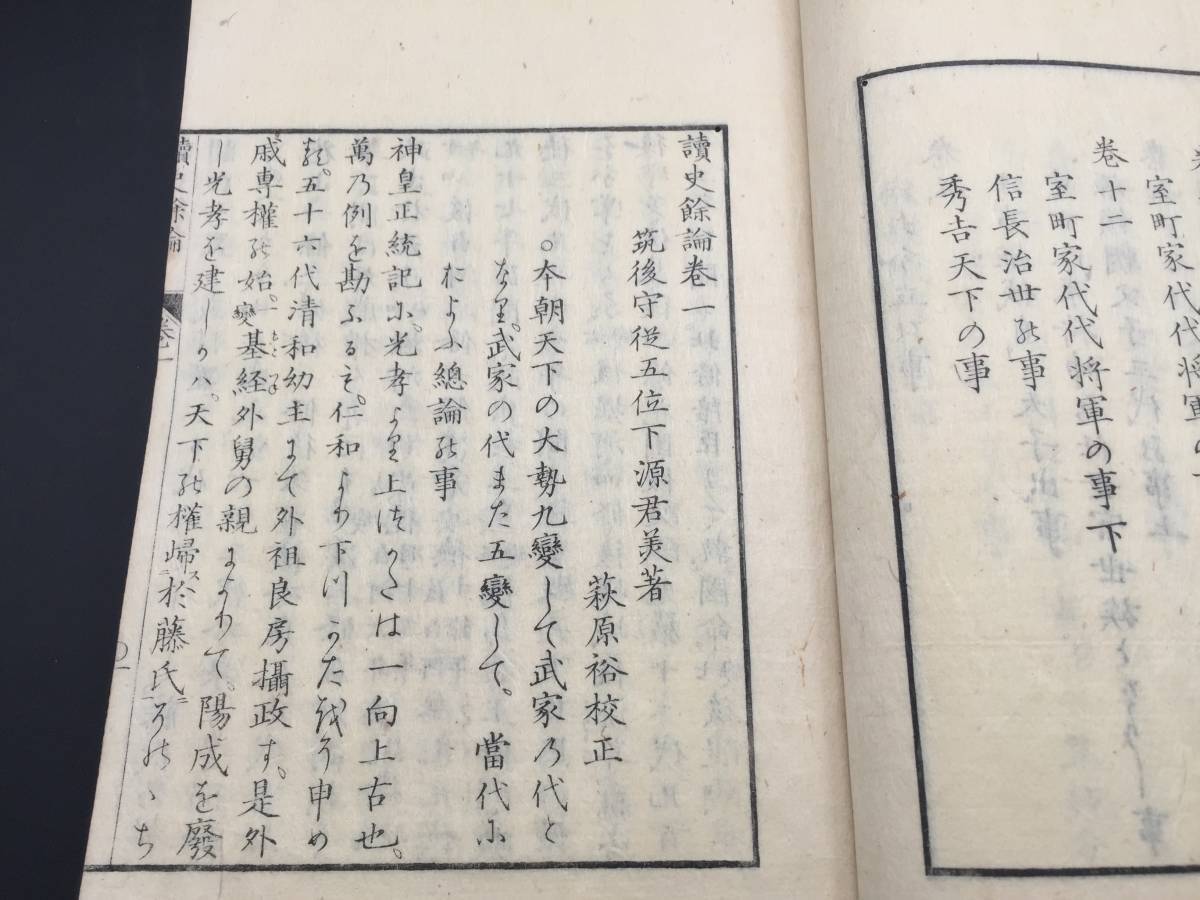 室町家代代将軍の
卷十二
室町家代代将軍の事下
信長治世の事
秀吉天下の事
讀史餘論卷一
筑後守従五位下源君美著
萩原裕校正
。本朝天下の大勢九變して武家の代と
なり。武家の代また五變して。當代に
およふ總論の事
神皇正統記に。光孝より上つかたは一向上古也。
萬の例を勘ふるも。仁和より下つかたをそ申め
る。五十六代清和幼主にて外祖良房攝政す。是外
戚専權の始。一變基経もとつね外舅の親によりて。陽成を廢
し光孝を建しかハ。天下の權帰ス於藤氏ニそのゝち
讀史餘論
卷一